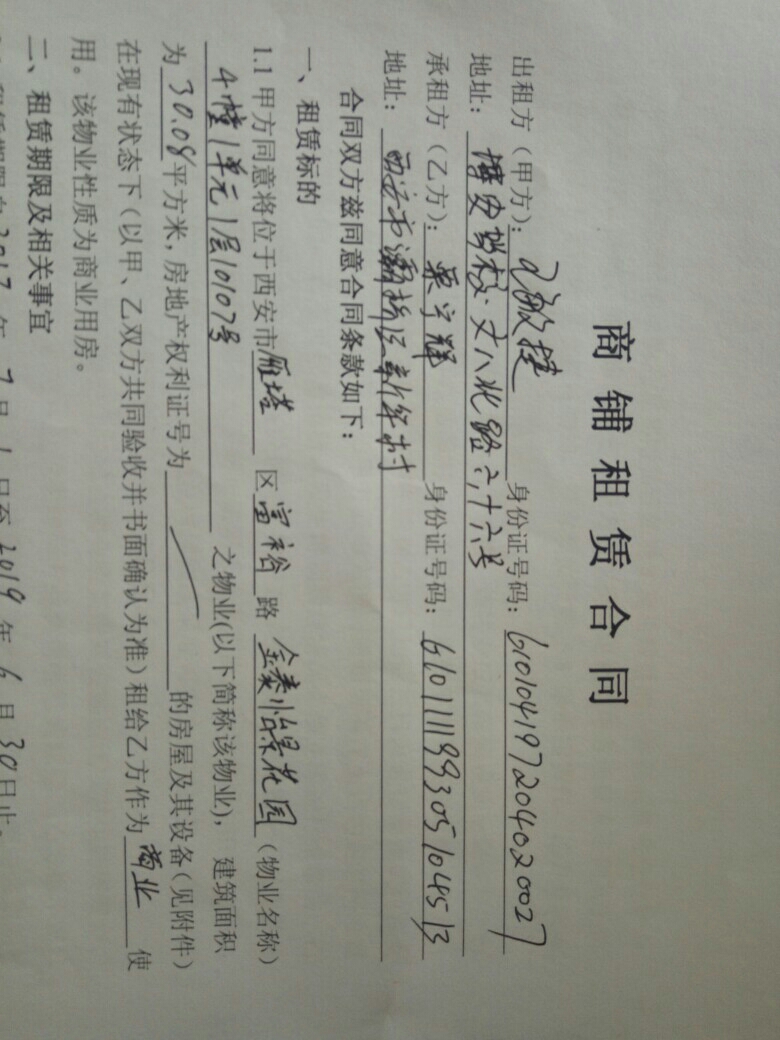 商铺租赁合同
出租方（甲方）： 敏捷 身份证号码：610104197204020027
地址： 文八北路六十六号
承租方（乙方）：栗宁辉 身份证号码：610111199305104513
地址：西安市灞桥区新年村
合同双方兹同意合同条款如下：
一、租赁标的
1.1 甲方同意将位于西安市雁塔 区富裕 路 金泰怡景花园（物业名称）
4幢1单元1层10107号 之物业(以下简称该物业)，建筑面积
为30.08平方米，房地产权利证号为 的房屋及其设备(见附件)
在现有状态下（以甲、乙双方共同验收并书面确认为准）租给乙方作为商业 使
用。该物业性质为商业用房。
二、租赁期限及相关事宜
2017 年 7 月 1 日至 2019 年 6 月 30日止。